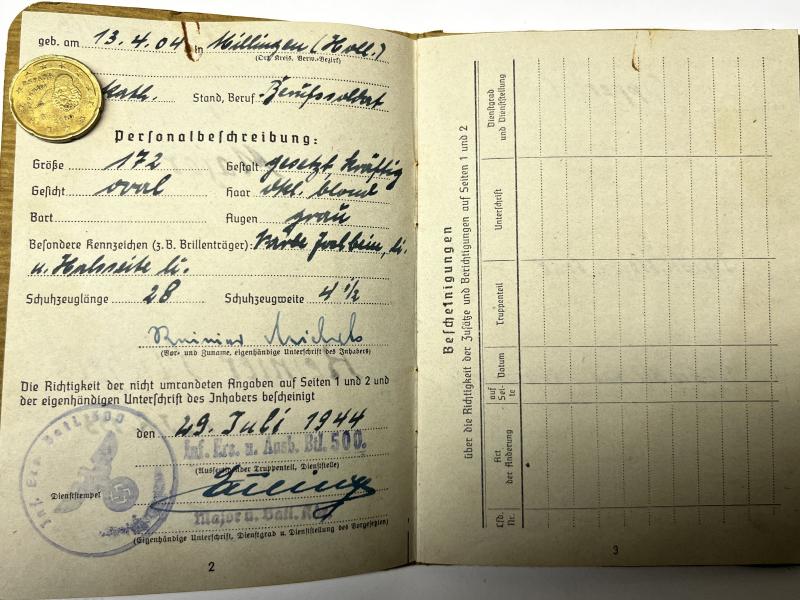 geb. am 13.4.04 in Millingen (Holl.)
(Ort, Kreis, Verw.-Bezirk)
kath. Stand, Beruf Berufssoldat
Personalbeschreibung:
Größe 172 Gestalt gesetzt, kräftig
Gesicht oval Haar dkl. blond
Bart Augen grau
Besondere Kennzeichen (z.B. Brillenträger): Narbe li.
u. Halsseite li.
Schuhzeuglänge 28 Schuhzeugweite 4 1/2
Reinier Michels
(Vor- und Zuname, eigenhändige Unterschrift des Inhabers)
Die Richtigkeit der nicht umrandeten Angaben auf Seiten 1 und 2 und
der eigenhändigen Unterschrift des Inhabers bescheinigt
den 29. Juli 1944
Inf. Erf. u. Ausb. Btl. 500.
(Ausfertigender Truppenteil, Dienststelle)
Dienststempel
Major u. Batl. Kdr.
(Eigenhändige Unterschrift, Dienstgrad u. Dienststellung des Vorgesetzten)
2
Bescheinigungen
über die Richtigkeit der Zusätze und Berichtigungen auf Seiten 1 und 2
Lfd. Nr.
Art der Änderung
auf Seite
Datum
Truppenteil
Unterschrift
Dienstgrad und Dienststellung
3